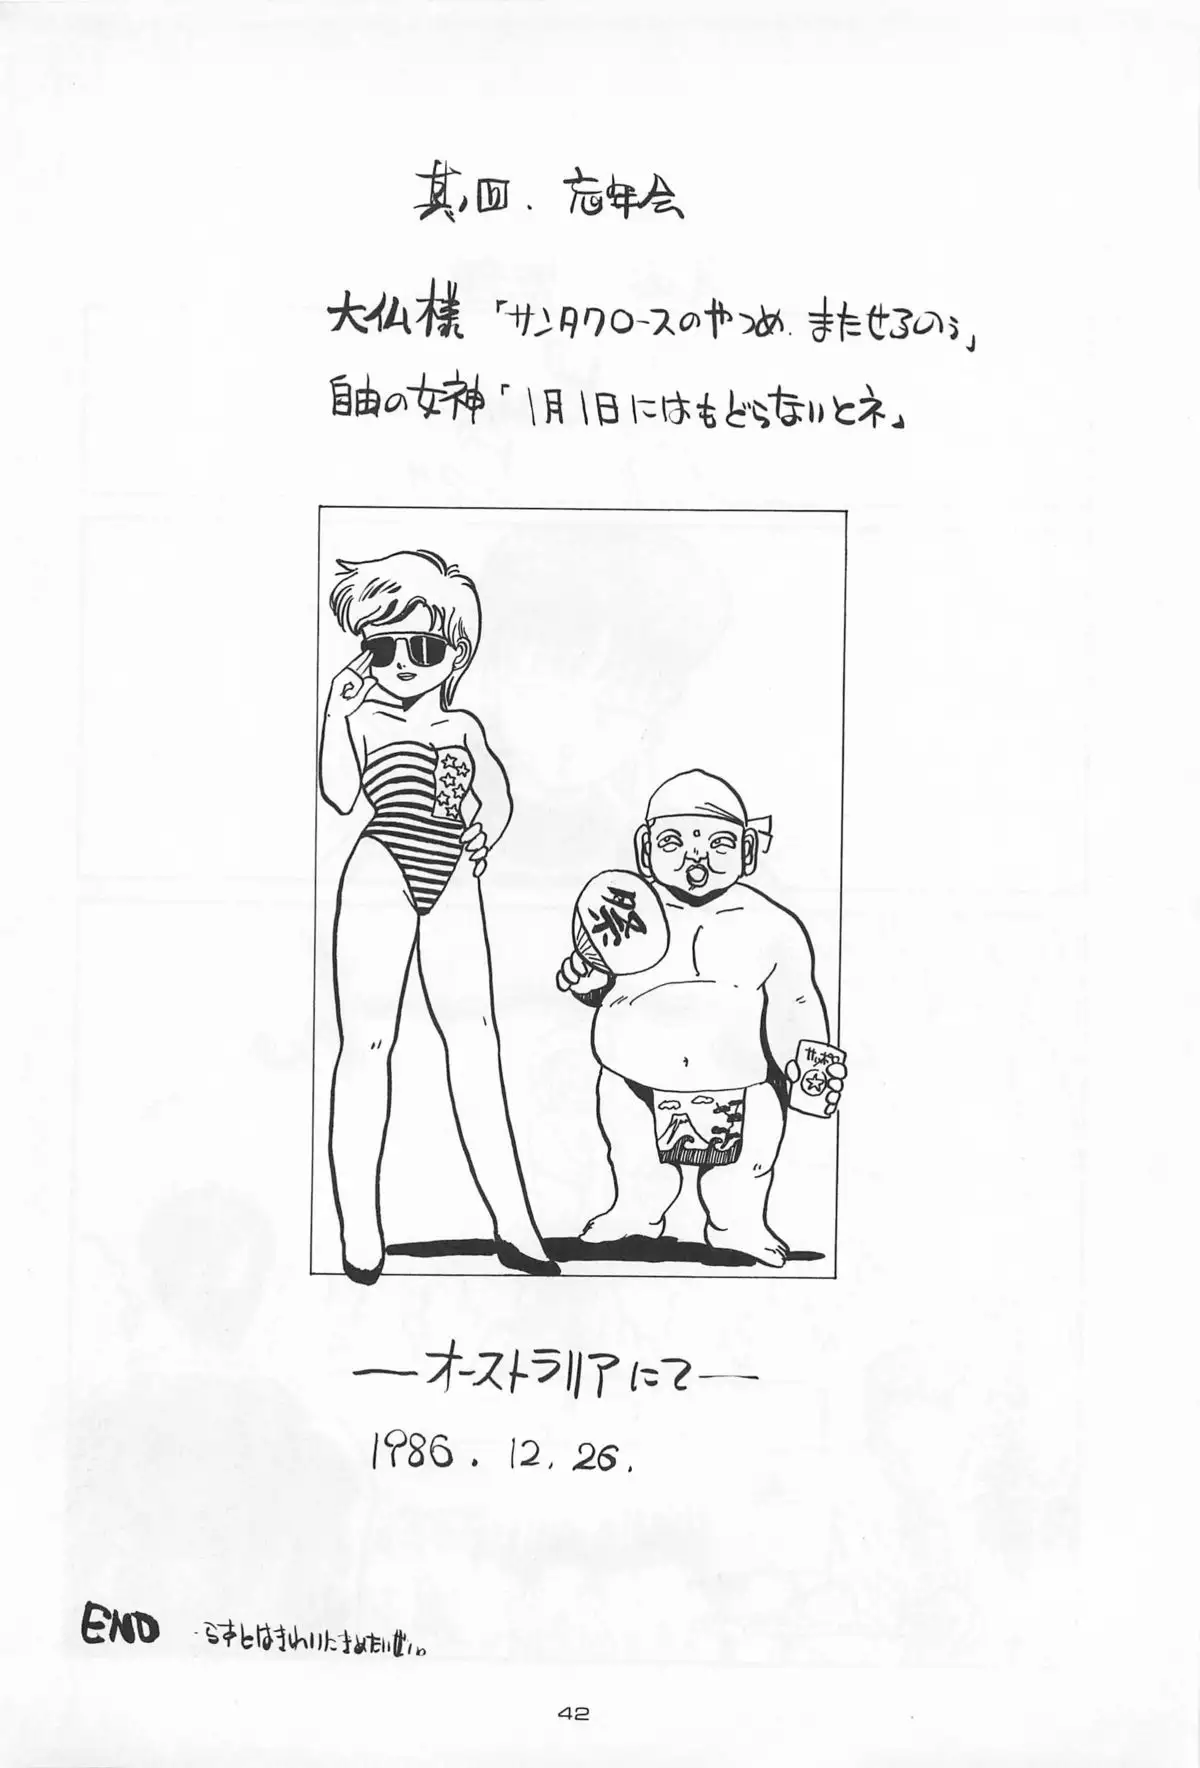 其ノ四. 忘年会
大仏様「サンタクロースのやつめ.またせるのぅ」
自由の女神「1月1日にはもどらないとネ」
祭
サッポロ
—オーストラリアにて—
1986. 12. 26.
END ・らすとはきれいにきめたいぜい。
42